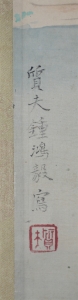 質夫鍾鴻毅寫